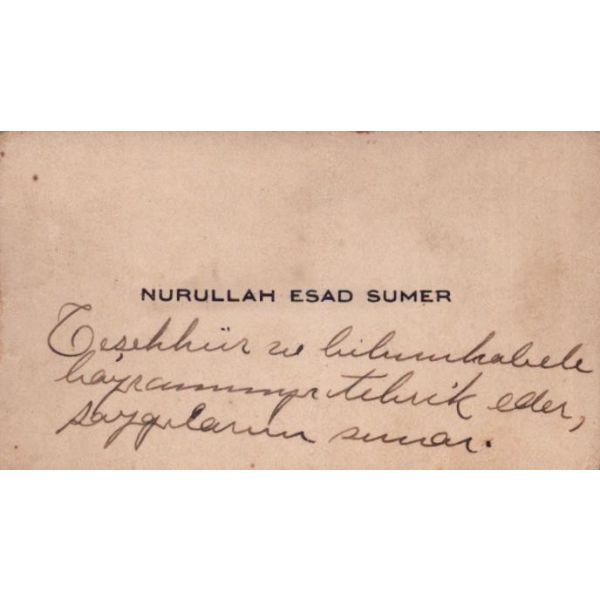 NURULLAH ESAD SUMER
Teşekkür ve bilmukabele
bayramınızı tebrik eder,
saygılarını sunar.